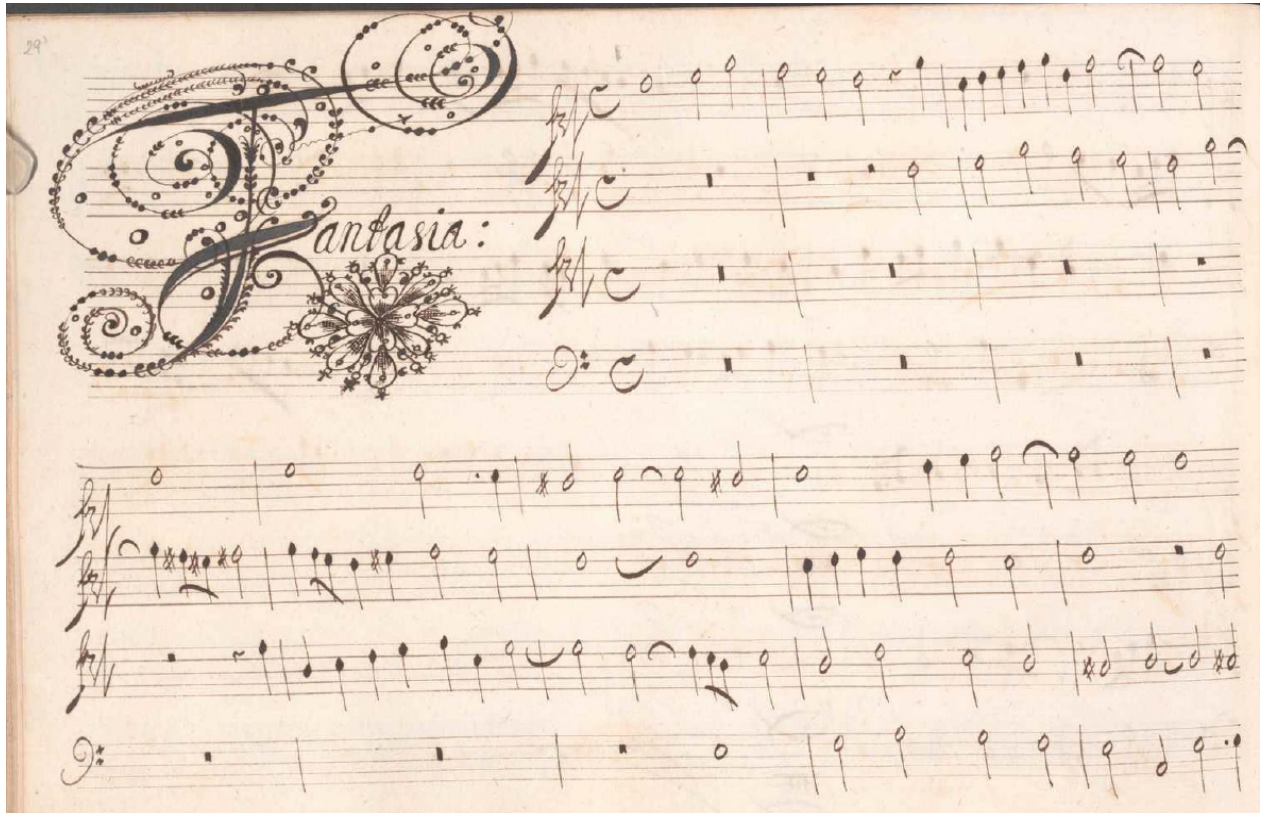 29
Fantasia: